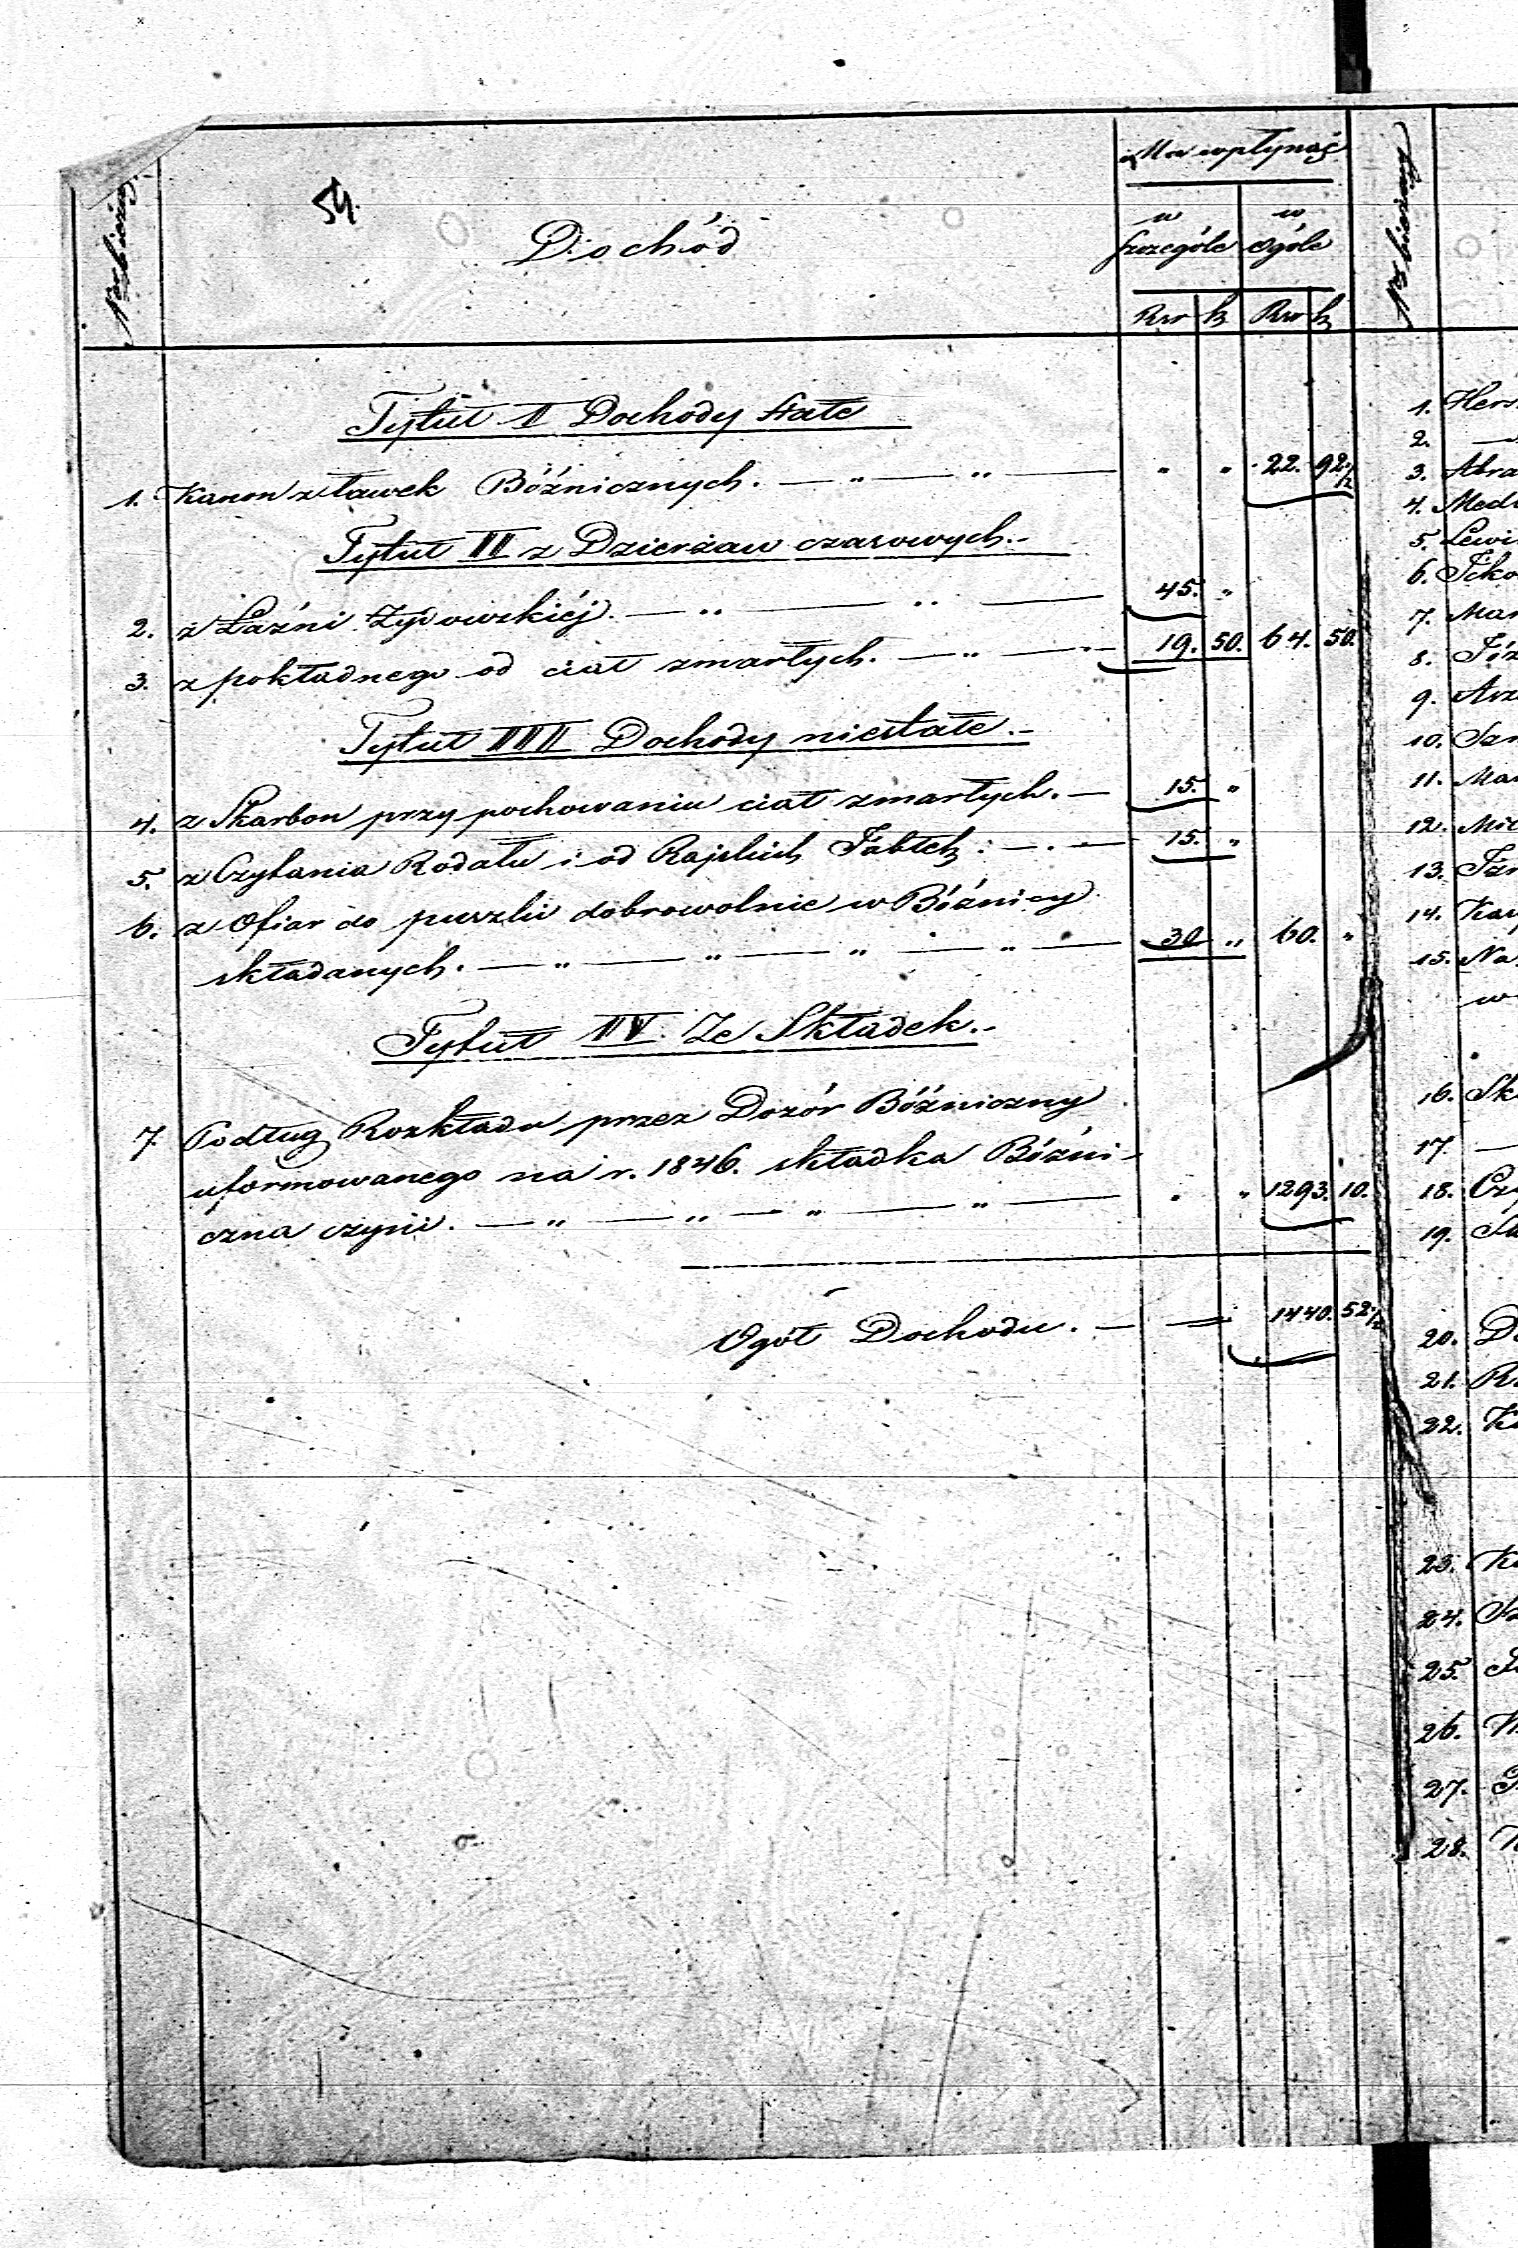 54.
Nr bieżący
Dochód
Ma wpłynąć
w szczególe
w ogóle
Rsr k Rsr k
Tytuł I Dochody stałe
1. Kanon z ławek Bóźnicznych. — „ — „ — „ „ 22. 92 1/2
Tytuł II z Dzierżaw czasowych.-
2. z Łaźni Żydowskiéj. — „ — „ — 45. „
3. z pokładnego od ciał zmarłych. — „ — 19. 50. 64. 50.
Tytuł III Dochody niestałe.-
4. z Skarbon przy pochowaniu ciał zmarłych. — 15. „
5. z Czytania Rodału i od Rajskich Jabłek. — . — 15. „
6. z Ofiar do puszki dobrowolnie w Bóźnicy
składanych. — „ — „ — „ — „ — 30 „ 60. „
Tytuł IV. Ze Składek.-
7. Podług Rozkładu przez Dozór Bóźniczny
uformowanego na r. 1846. składka Bóźni-
czna czyni. — „ — „ — „ — „ — „ „ 1293. 10.
Ogół Dochodu. — = 1440. 52 1/2
Nr bieżący
1. Hers
2. —
3. Abra
4.
5. Lewi
6. Icko
7.
8.
9.
10.
11.
12.
13.
14.
15.
16.
17. —
18.
19.
20.
21.
22.
23.
24.
25.
26.
27.
28.